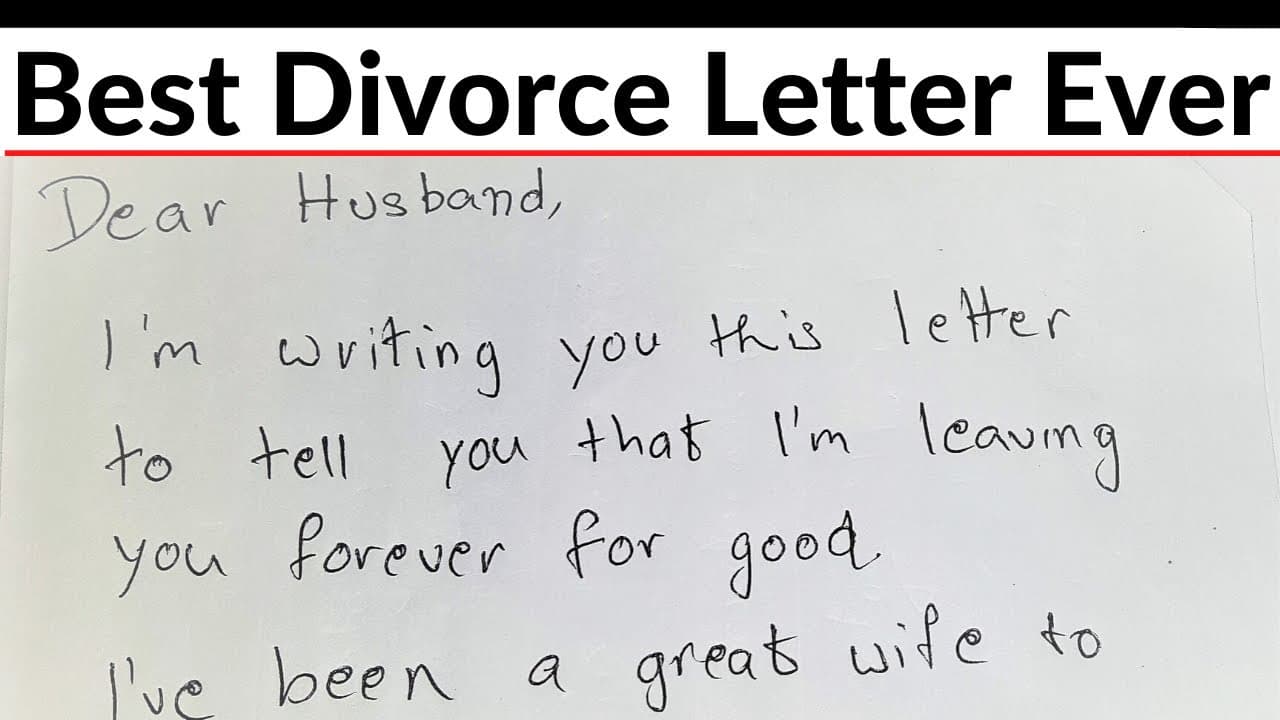 Best Divorce Letter Ever
Dear Husband,
I'm writing you this letter
to tell you that I'm leaving
you forever for good
I've been a great wife to